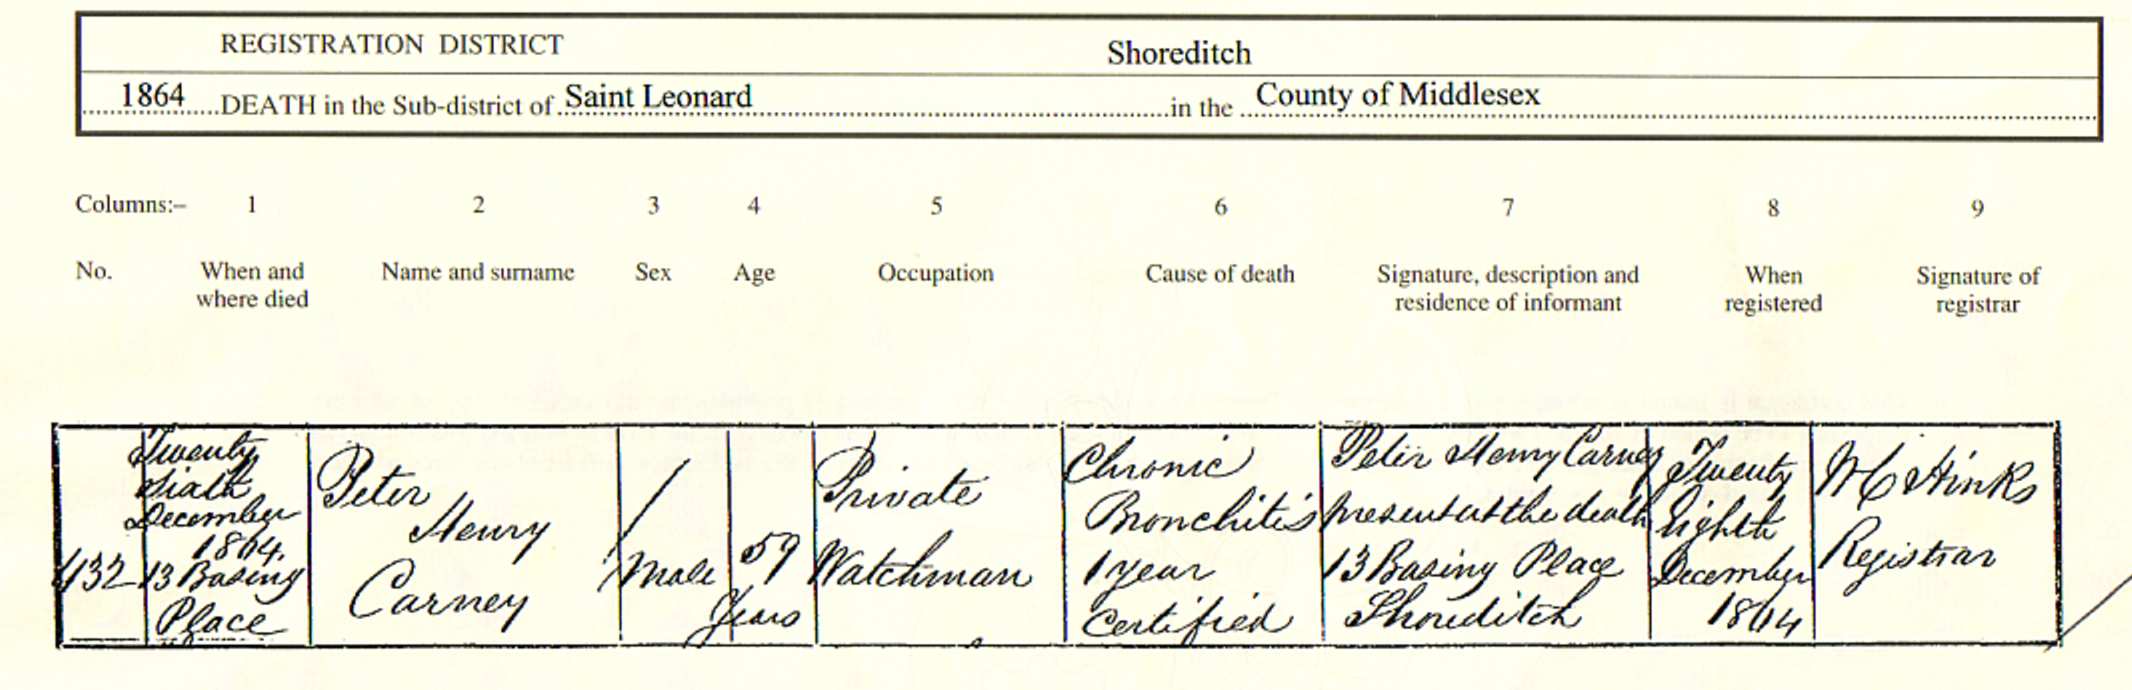 REGISTRATION DISTRICT Shoreditch
1864 DEATH in the Sub-district of Saint Leonard in the County of Middlesex
Columns:– 1 2 3 4 5 6 7 8 9
No. When and where died Name and surname Sex Age Occupation Cause of death Signature, description and residence of informant When registered Signature of registrar
432
Twenty
Sixth
December
1864
13 Basing
Place
Peter
Henry
Carney
Male
59
Years
Private
Watchman
Chronic
Bronchitis
1 year
Certified
Peter Henry Carney
present at the death
13 Basing Place
Shoreditch
Twenty
Eighth
December
1864
Hinks
Registrar